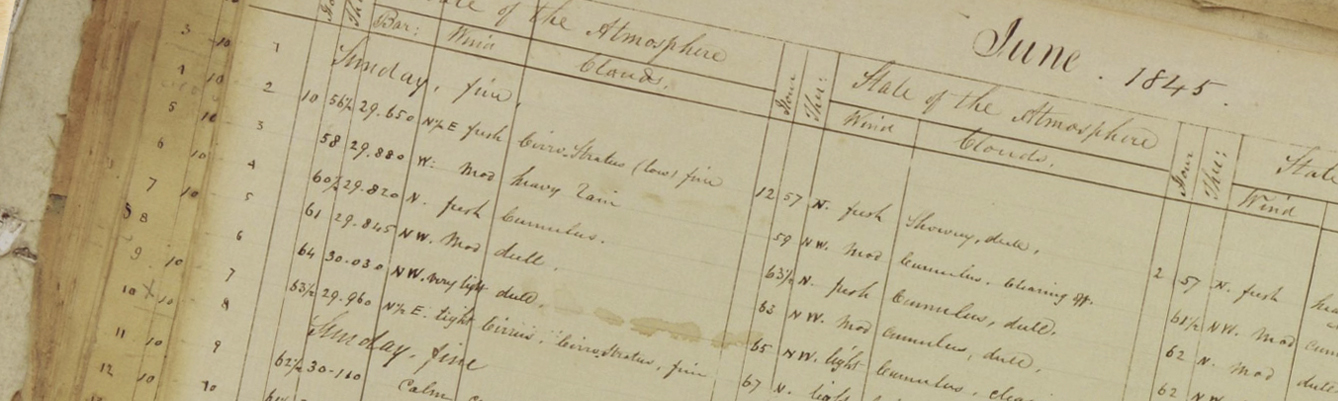 June. 1845.
of the Atmosphere
Bar: Wind Clouds.
Hour Ther: State of the Atmosphere
Wind Clouds.
Hour Ther: State
Wind
1 Sunday, fine,
2 10 56½ 29.650 N½E fresh Cirro, Stratus (low) fine 12 57 N. fresh Showery, dull, 2 57 N. fresh
3 58 29.880 W: Mod heavy Rain 59 NW. Mod Cumulus, Clearing up. 61½ NW. Mod
4 60½ 29.820 N. fresh Cumulus. 63½ N. fresh Cumulus, dull, 62 N. Mod dull
5 61 29.845 NW. Mod dull, 63 NW. Mod Cumulus, dull, 62 NW
6 64 30.030 NW. very light dull, 65 NW. light Cumulus,
7 63½ 29.960 N½E. light Cirrus, Cirro, Stratus, fine 67 N. light
8 Sunday, fine
9 62½ 30.110 Calm
10
3 10
4 10
5 10
6 10
7 10
8
9 10
10 10
11 10
12 10